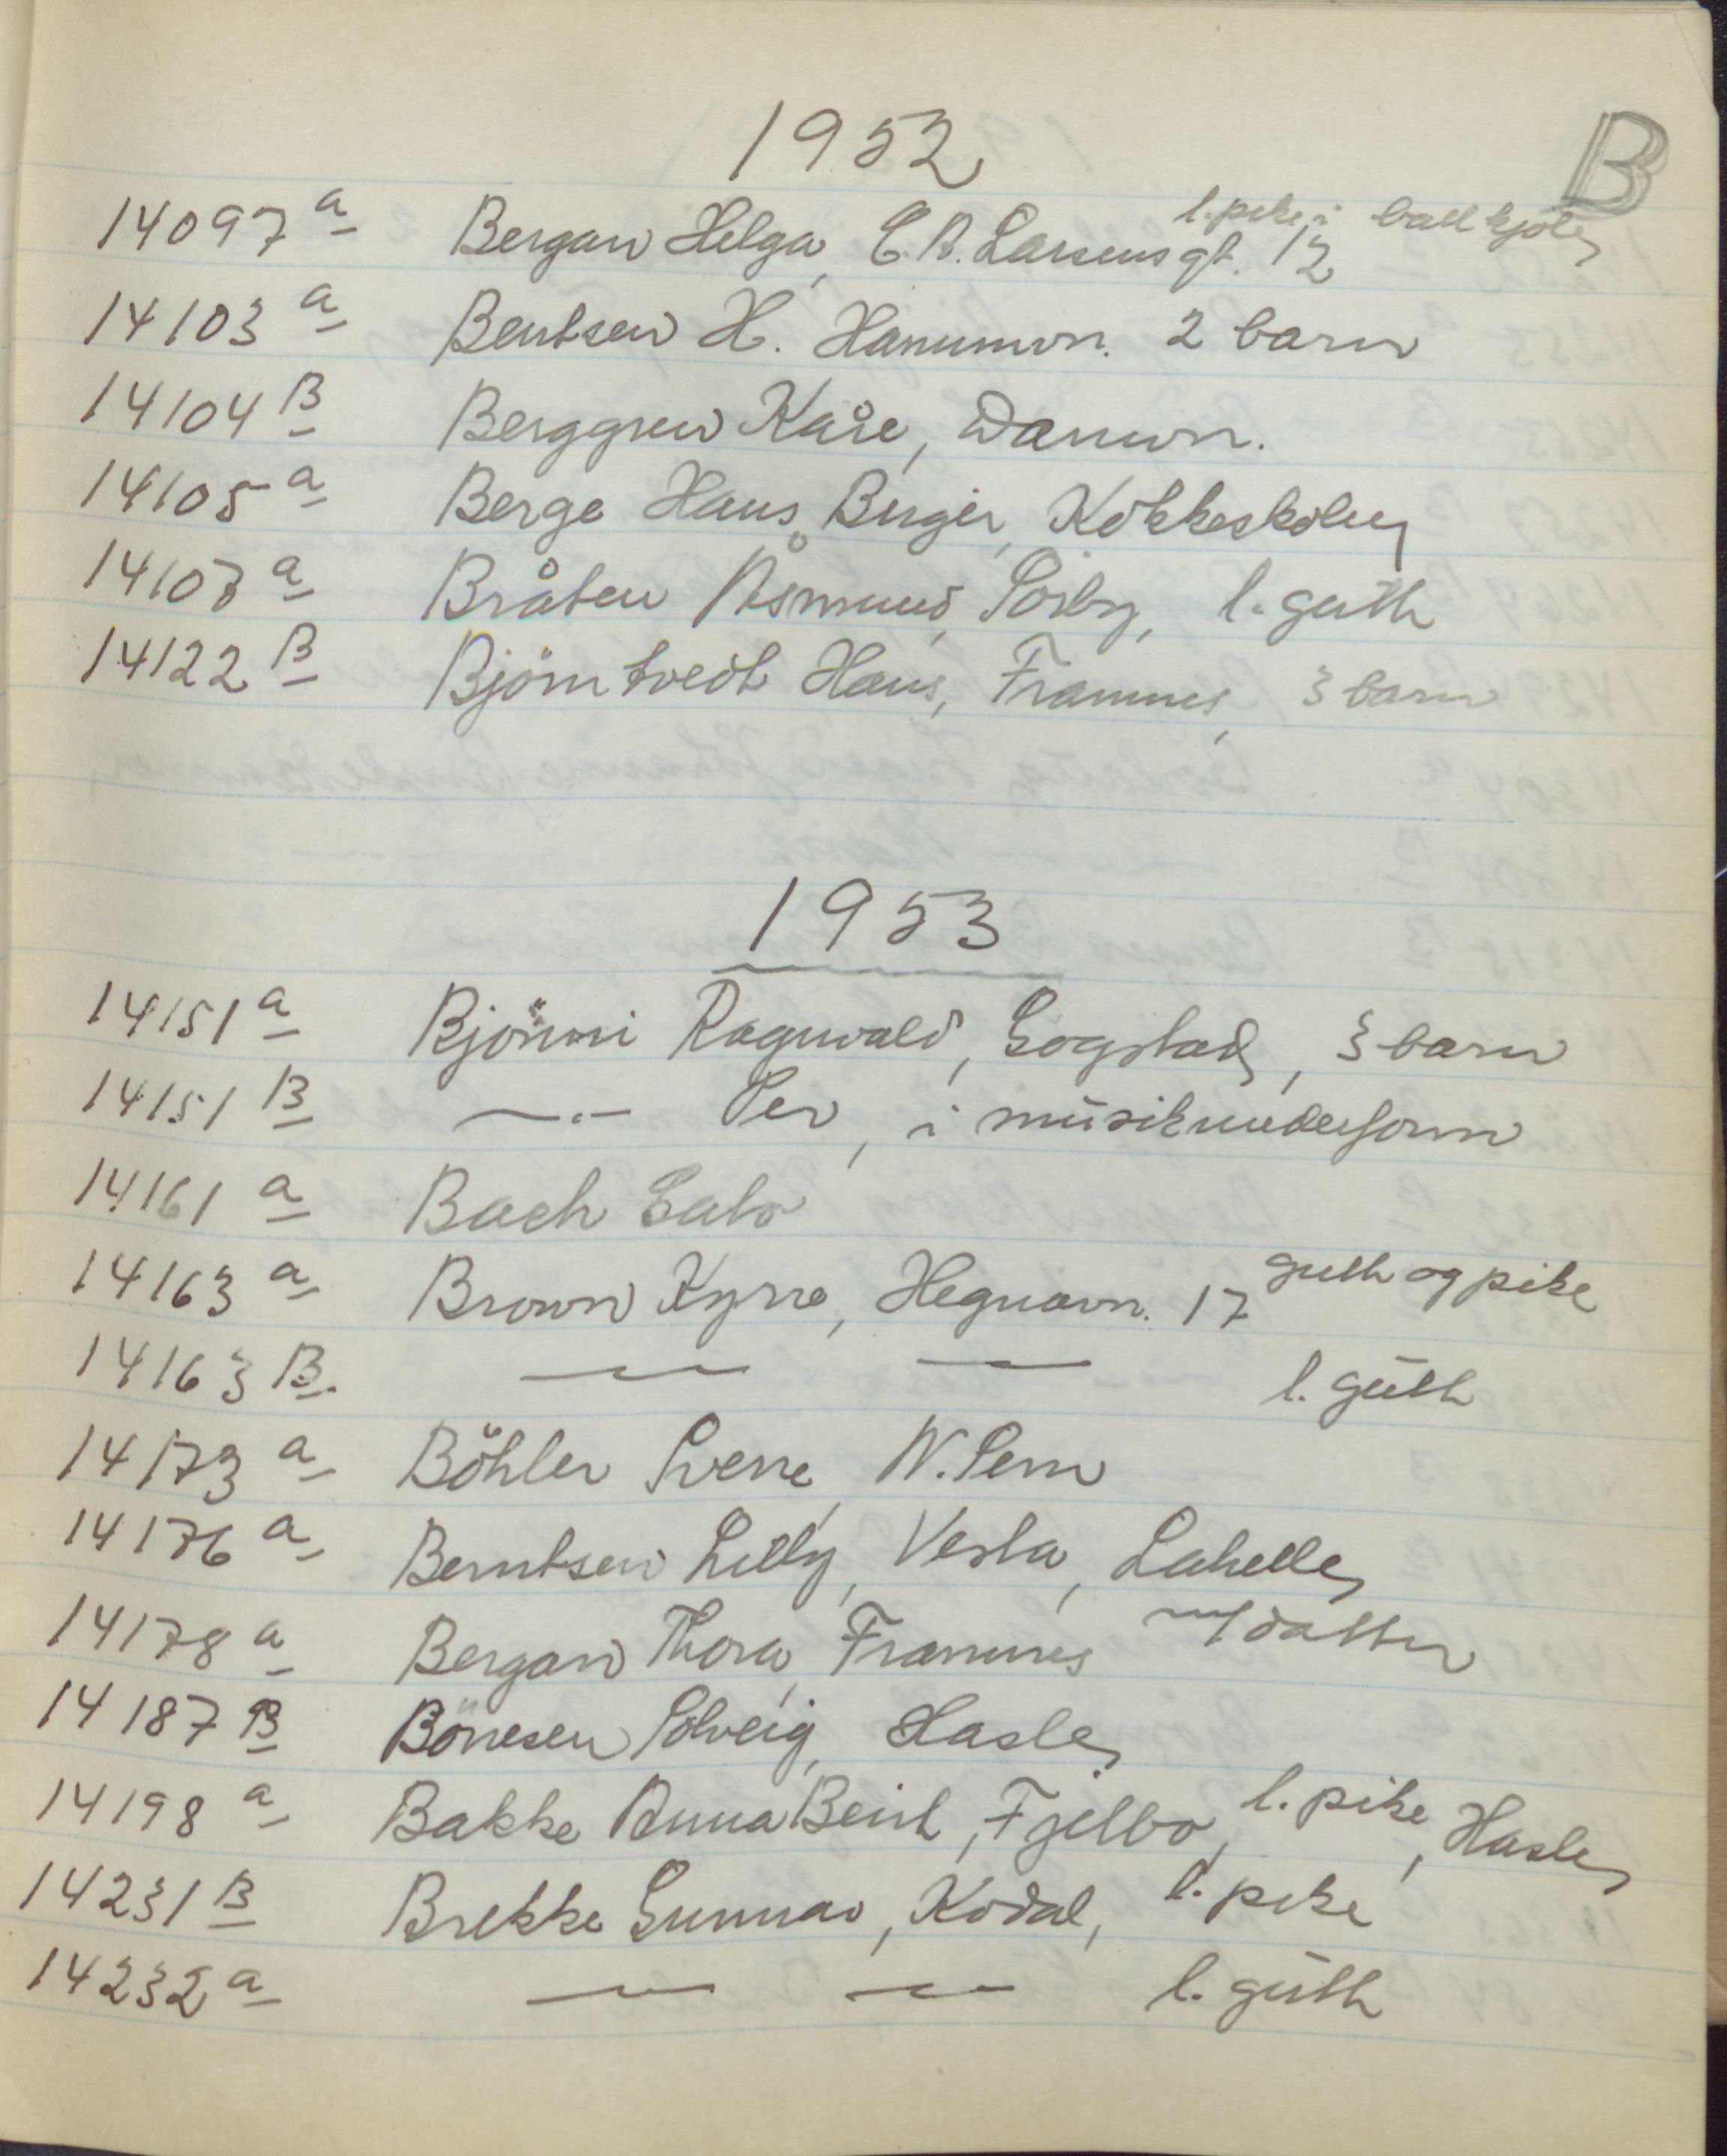 B
1952
14097 a Bergan Helga, C.A. Larsens gt. 12 l. pike i ballkjole
14103 a Bentsen H. Hanumvn. 2 barn
14104 B Berggren Kåre, Damvn.
14105 a Berge Hans Birger, Kökkeskolen
14107 a Bråten Åsmund, Sörby, l. gutt
14122 B Björntvedt Hans, Framnes, 3 barn
1953
14151 a Bjönni Ragnvald, Gogstad, 3 barn
14151 B —.— Per, i musikuniform
14161 a Bach
14163 a Brown Kyrre, Hegnavn. 17 gutt og pike
14163 B. — — l. gutt
14173 a Böhler Sverre, N. Sem
14176 a Berntsen Lilly, Vesta, Lahelle
14178 a Bergan Thora, Framnes m/datter
14187 B Bönesen Solveig, Hasle
14198 a Bakke Anna Berit, Fjelbo, l. pike, Hasle
14231 B Brekke Gunnar, Kodal, l. pike
14232 a — — l. gutt